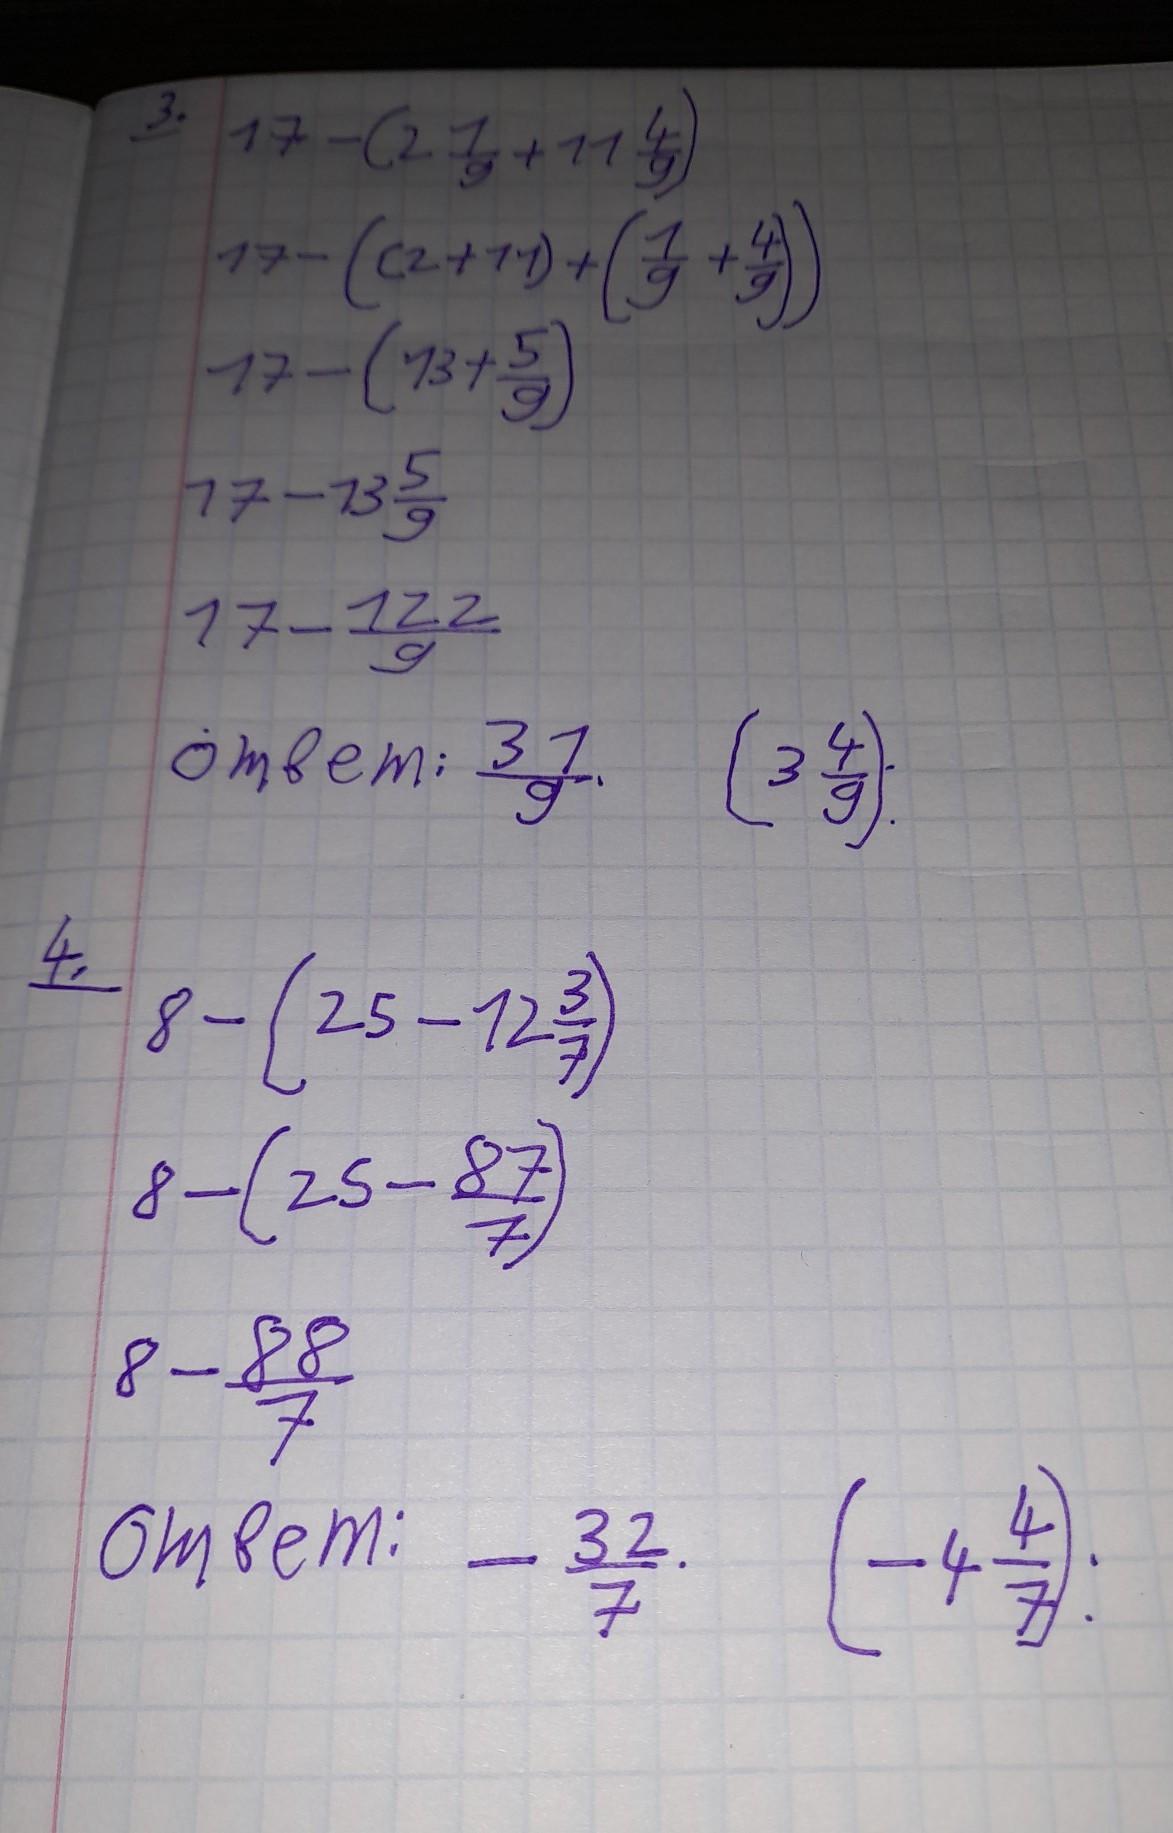 3. 17 - (2 1/9 + 11 4/9)
17 - ((2 + 11) + (1/9 + 4/9))
17 - (13 + 5/9)
17 - 13 5/9
17 - 122/9
ответ: 31/9. (3 4/9).
4. 8 - (25 - 12 3/7)
8 - (25 - 87/7)
8 - 88/7
ответ: - 32/7. (- 4 4/7).